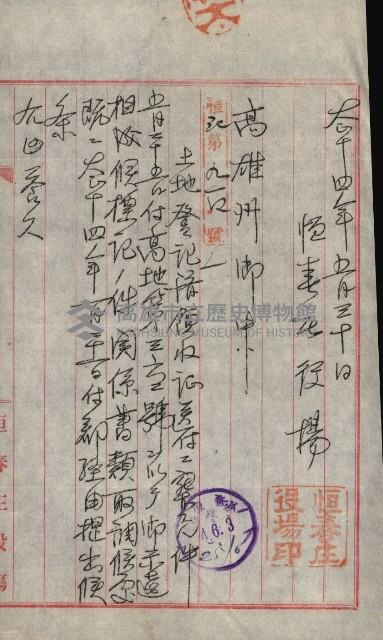 大正十四年五月三十日
恒春庄役場
恒春庄役場印
高雄州御中
恒记第九一〇號ノ
土地登記済領收证送付ニ關スル件
五月二十五日付高地第三六三號ヲ以テ御返
相成候標記ノ件関係書類取調候処
既ニ大正十四年 月十一日付郡經由提出候
条
右回答ス
14.6.3
高雄市立歷史博物館
KAOHSIUNG MUSEUM OF HISTORY
恒春庄役場